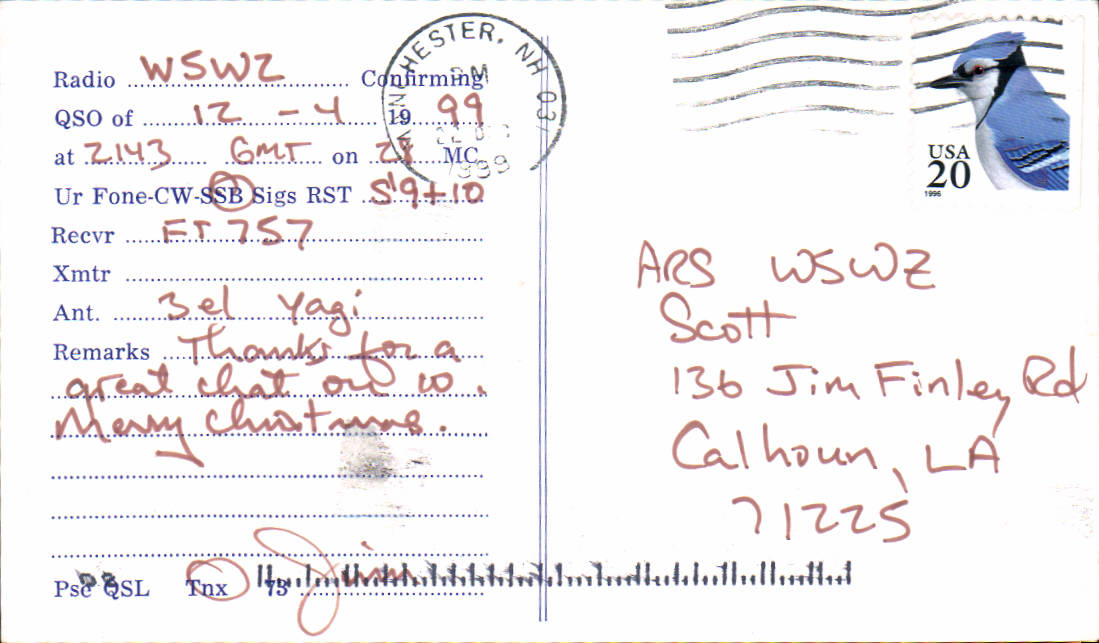 Radio W5WZ Confirming
QSO of 12 - 4 1999
at 2143 GMT on 28 MC
Ur Fone-CW-SSB Sigs RST 59+10
Recvr FT 757
Xmtr
Ant. 3el Yagi
Remarks Thanks for a
great chat on 10.
Merry Christmas.
Pse QSL Tnx 73 Jim
MANCHESTER, NH 03
PM
1999
USA
20
1996
ARS W5WZ
Scott
136 Jim Finley Rd
Calhoun, LA
71225